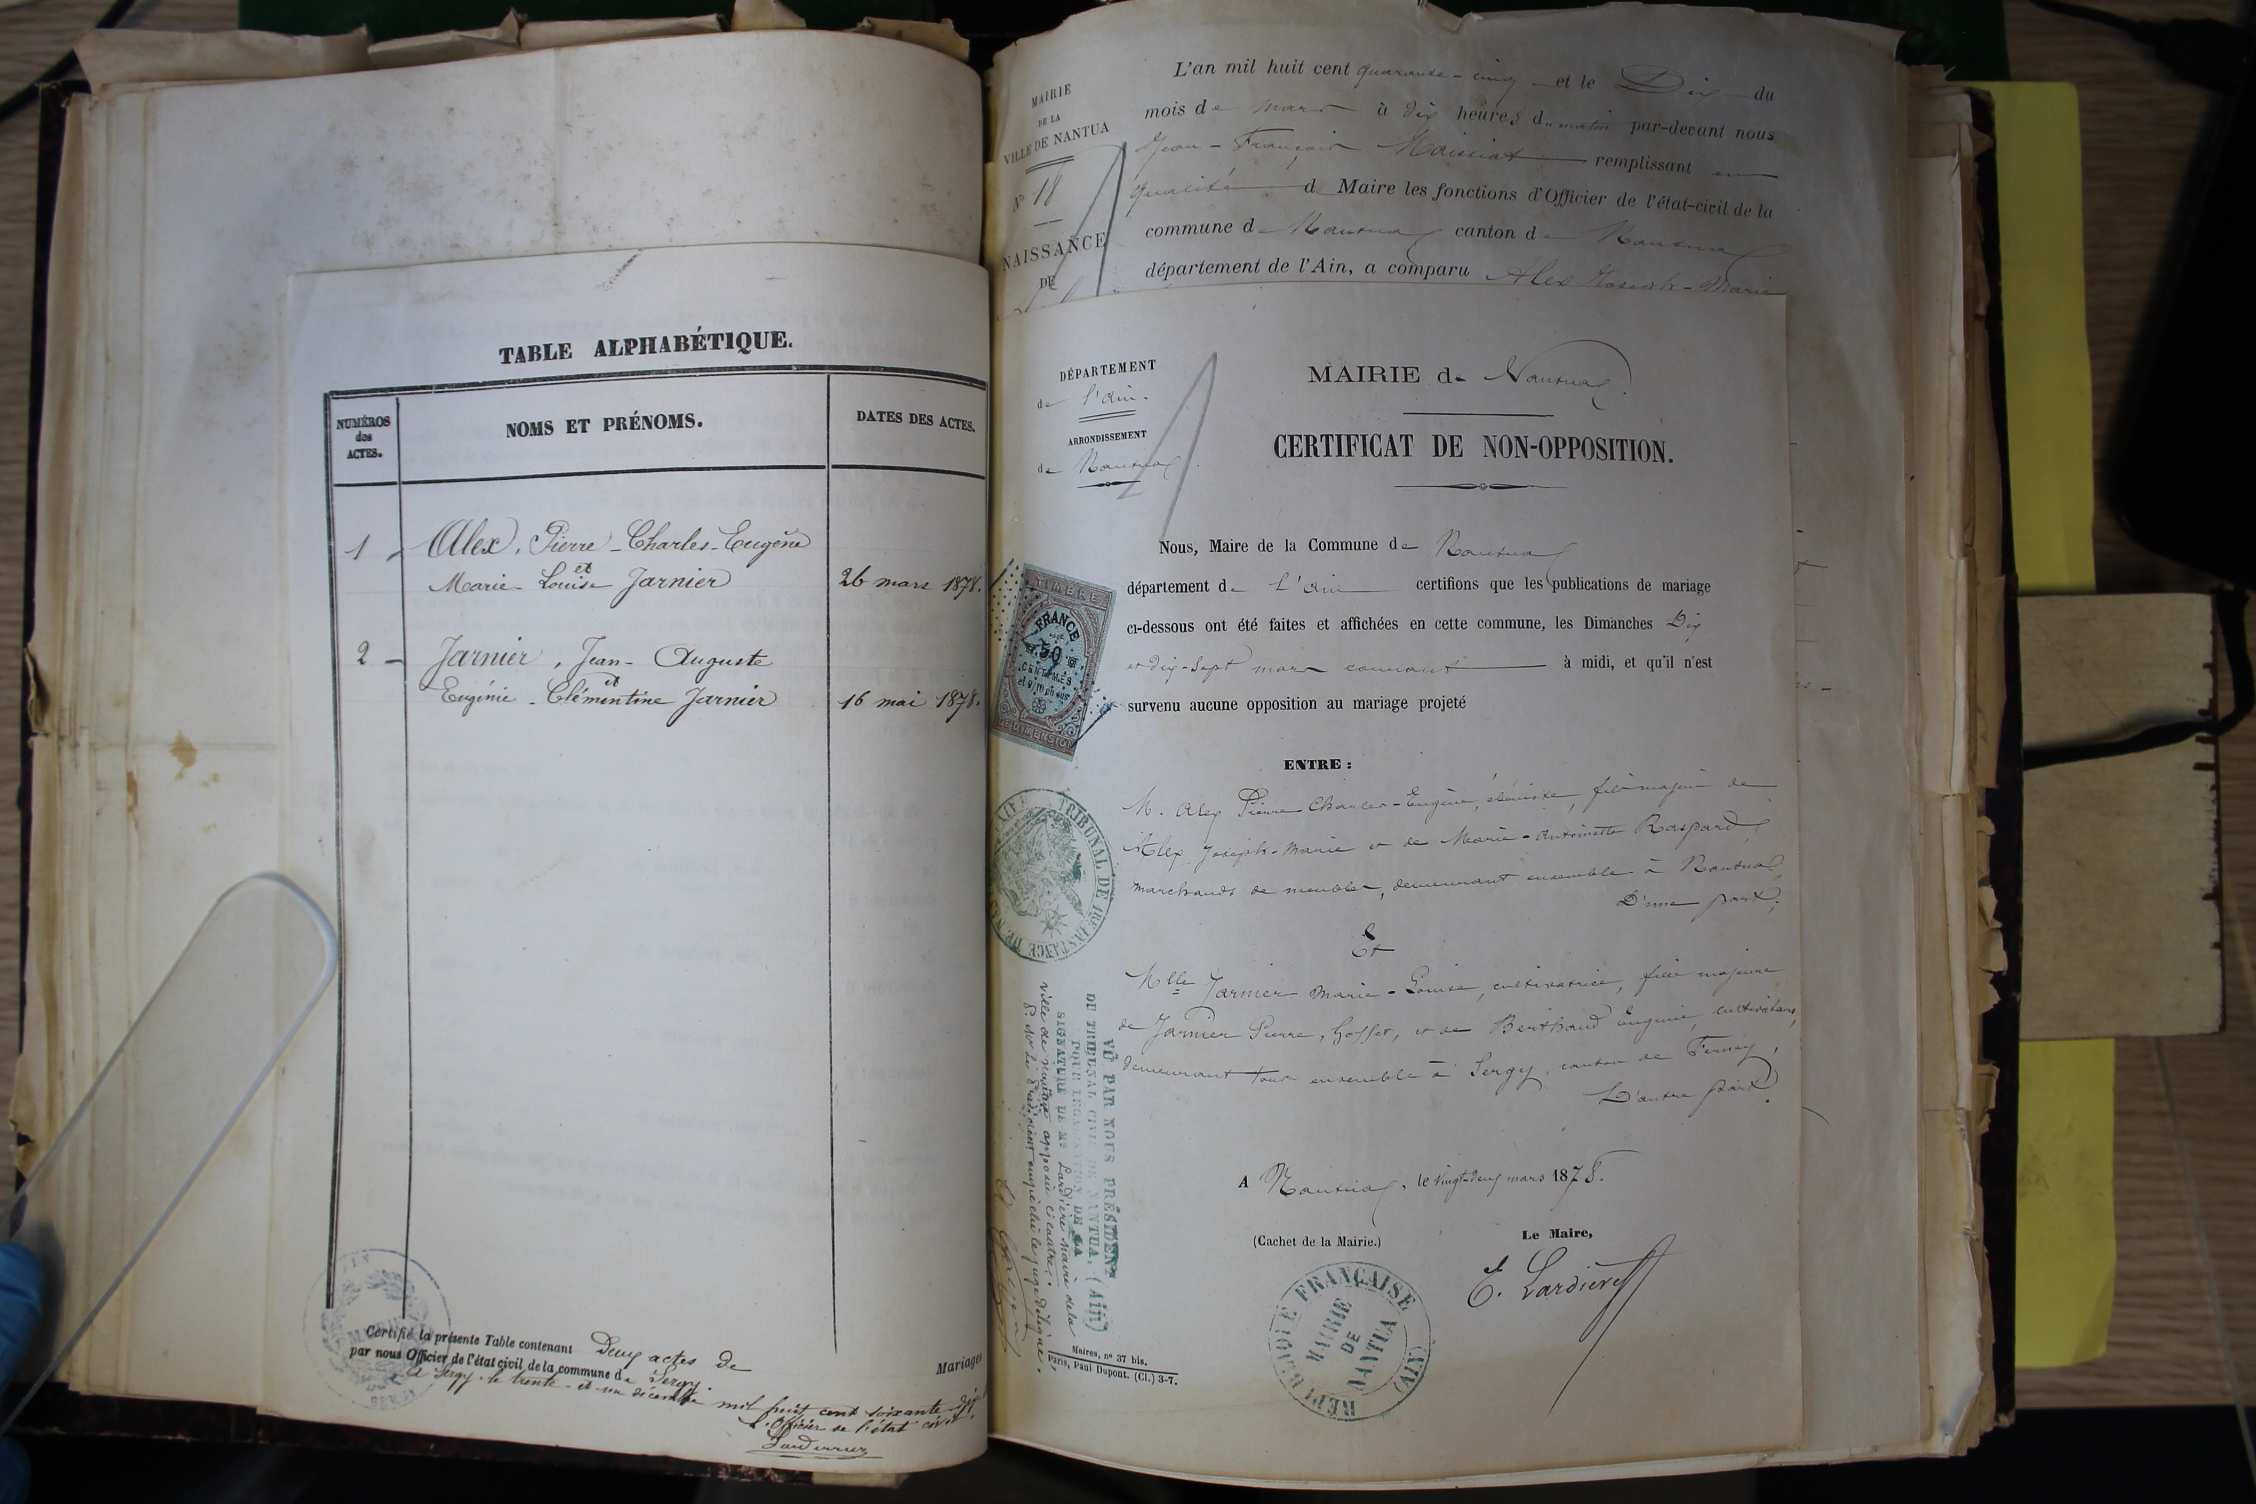 TABLE ALPHABÉTIQUE.
NUMÉROS
des
ACTES.
NOMS ET PRÉNOMS.
DATES DES ACTES.
1 Alex, Pierre-Charles-Eugène
et
Marie-Louise Jarnier 26 mars 1878.
2 Jarnier, Jean-Auguste
et
Eugénie-Clémentine Jarnier 16 mai 1878.
Certifié la présente Table contenant Deux actes de
Mariages
par nous Officier de l'état civil de la commune de Sergy.
A Sergy, le trente-et-un décembre mil huit cent soixante-dix
L'Officier de l'état civil,
MAIRIE
DE LA
VILLE DE NANTUA
N° 18
NAISSANCE
DE
L'an mil huit cent quarante-cinq et le Dix du
mois de mars à dix heures du matin par-devant nous
Jean-François Maissiat remplissant en
qualité d Maire les fonctions d'Officier de l'état-civil de la
commune de Nantua canton de Nantua
département de l'Ain, a comparu Alex Joseph-Marie
DÉPARTEMENT
de l'Ain.
ARRONDISSEMENT
de Nantua
MAIRIE de Nantua.
CERTIFICAT DE NON-OPPOSITION.
Nous, Maire de la Commune de Nantua
département de L'Ain certifions que les publications de mariage
ci-dessous ont été faites et affichées en cette commune, les Dimanches Dix
et dix-sept mars courant à midi, et qu'il n'est
survenu aucune opposition au mariage projeté
ENTRE :
M. Alex Pierre Charles-Eugène, ébéniste, fils majeur de
Alex Joseph-Marie et de Marie-Antoinette Raspard,
marchands de meubles, demeurant ensemble à Nantua,
D'une part,
Et
Mlle Jarnier Marie-Louise, cultivatrice, fille majeure
de Jarnier Pierre, Goffet, et de Berthoud Eugénie, cultivateurs,
demeurant tous ensemble à Sergy, canton de Ferney,
D'autre part.
A Nantua, le vingt-deux mars 1878.
(Cachet de la Mairie.)
Le Maire,
E. Lardière
RÉPUBLIQUE FRANÇAISE (AIN)
MAIRIE
DE
NANTUA
TIMBRE
FRANCE
50
CENTIMES
DIMENSION
TRIBUNAL DE 1RE INSTANCE DE NANTUA
VU PAR NOUS PRÉSIDENT
DU TRIBUNAL CIVIL DE NANTUA, (Ain)
POUR LÉGALISATION DE LA
SIGNATURE DE Mr Lardière Maire de la
ville de Nantua apposée ci contre.
P. Mr Le Président empêché le juge délégué,
Maires, n° 37 bis.
Paris, Paul Dupont. (Cl.) 3-7.